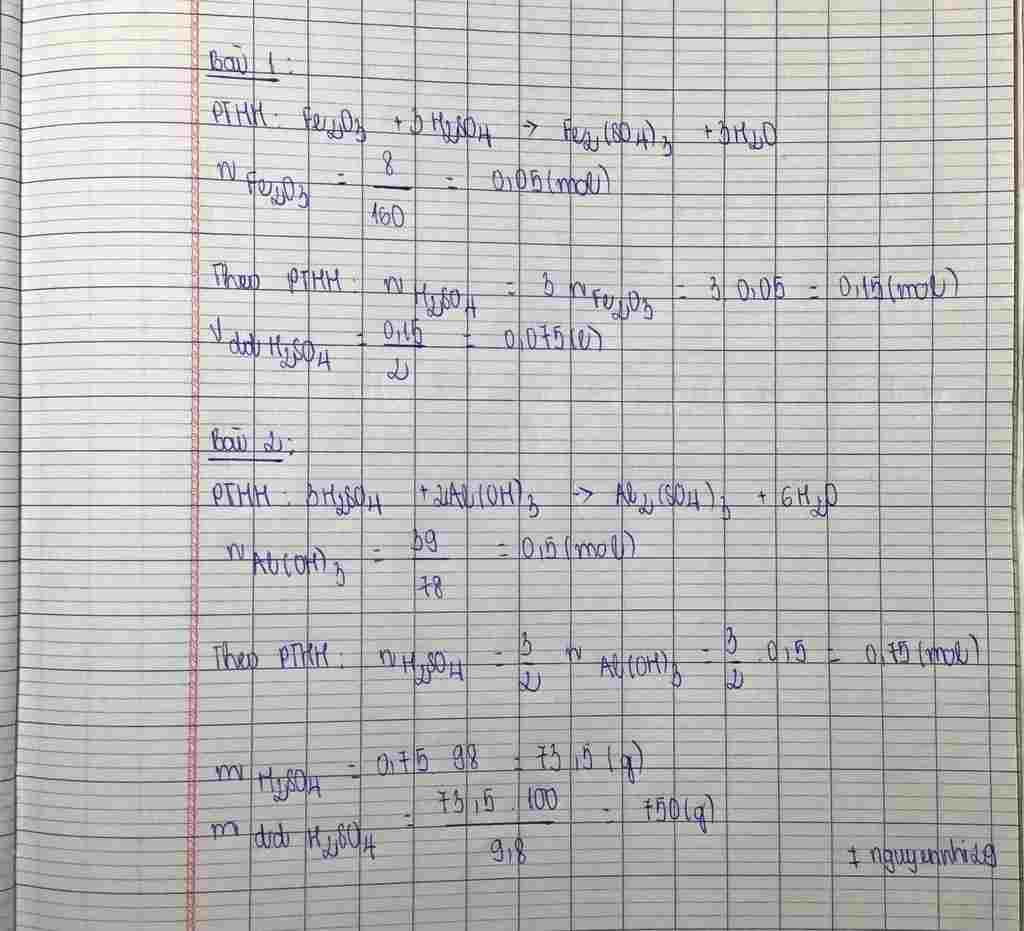 Bài 1:
PTHH: Fe₂O₃ + 3H₂SO₄ → Fe₂(SO₄)₃ + 3H₂O
n Fe₂O₃ = 8/160 = 0,05(mol)
Theo PTHH: n H₂SO₄ = 3 n Fe₂O₃ = 3 0,05 = 0,15(mol)
V dd H₂SO₄ = 0,15/2 = 0,075(l)
Bài 2:
PTHH: 3H₂SO₄ + 2Al(OH)₃ → Al₂(SO₄)₃ + 6H₂O
n Al(OH)₃ = 39/78 = 0,5(mol)
Theo PTHH: n H₂SO₄ = 3/2 n Al(OH)₃ = 3/2 . 0,5 = 0,75(mol)
m H₂SO₄ = 0,75 98 = 73,5(g)
m dd H₂SO₄ = 73,5 . 100/9,8 = 750(g)